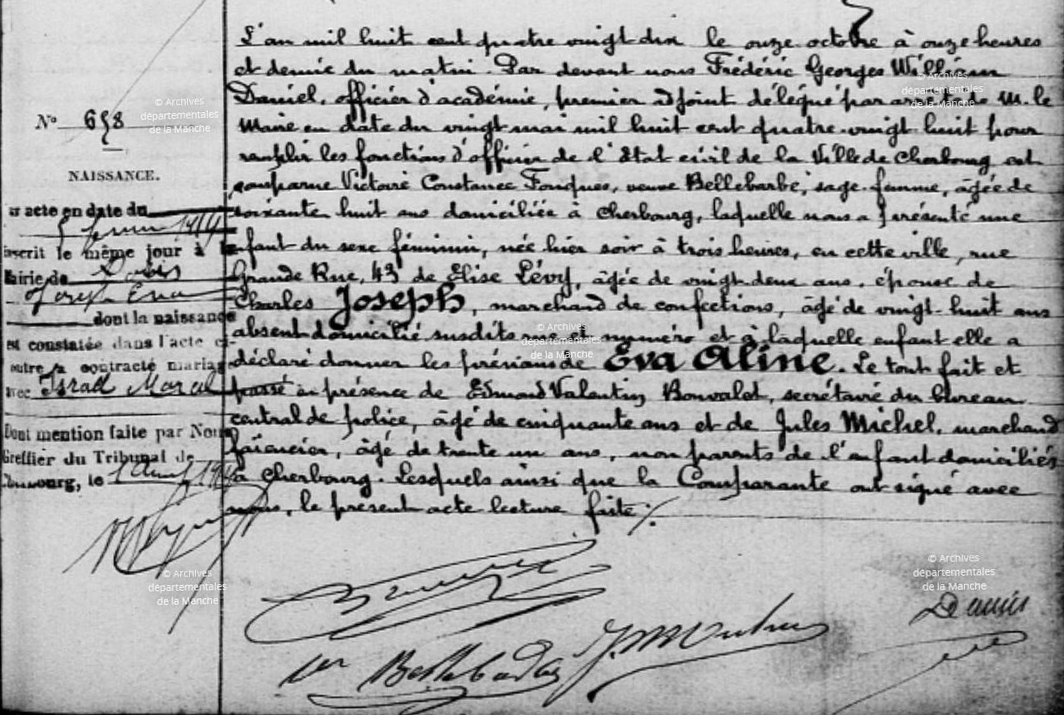 N° 658
NAISSANCE.
acte en date du
inscrit le même jour à la
Mairie de Paris
Joseph Eva
dont la naissance
est constatée dans l'acte ci-
contre a contracté mariage
avec Israel Marcel
Dont mention faite par Nous
Greffier du Tribunal de
Cherbourg, le
L'an mil huit cent quatre vingt dix le onze octobre à onze heures
et demie du matin. Par devant nous Frédéric Georges William
Daniel, officier d'académie, premier adjoint délégué par M. le
Maire en date du vingt mai mil huit cent quatre-vingt huit pour
remplir les fonctions d'officier de l'Etat civil de la Ville de Cherbourg est
comparue Victoire Constance Fouques, veuve Bellebarbe, sage-femme, âgée de
soixante huit ans domiciliée à Cherbourg, laquelle nous a présenté une
enfant du sexe féminin, née hier soir à trois heures, en cette ville, rue
Grande Rue, 43 de Elise Lévy, âgée de vingt-deux ans, épouse de
Charles Joseph, marchand de confections, âgé de vingt-huit ans
absent domicilié susdits rue et numéro et à laquelle enfant elle a
déclaré donner les prénoms de Eva Aline. Le tout fait et
passé en présence de Edmond Valentin Bonvalet, secrétaire du bureau
central de police, âgé de cinquante ans et de Jules Michel, marchand
faïencier, âgé de trente un ans, non parents de l'enfant domiciliés
à Cherbourg. Lesquels ainsi que la Comparante ont signé avec
nous, le présent acte lecture faite ./.
Vve Bellebarbe
© Archives
départementales
de la Manche
© Archives
départementales
de la Manche
© Archives
départementales
de la Manche
© Archives
départementales
de la Manche
© Archives
départementales
de la Manche